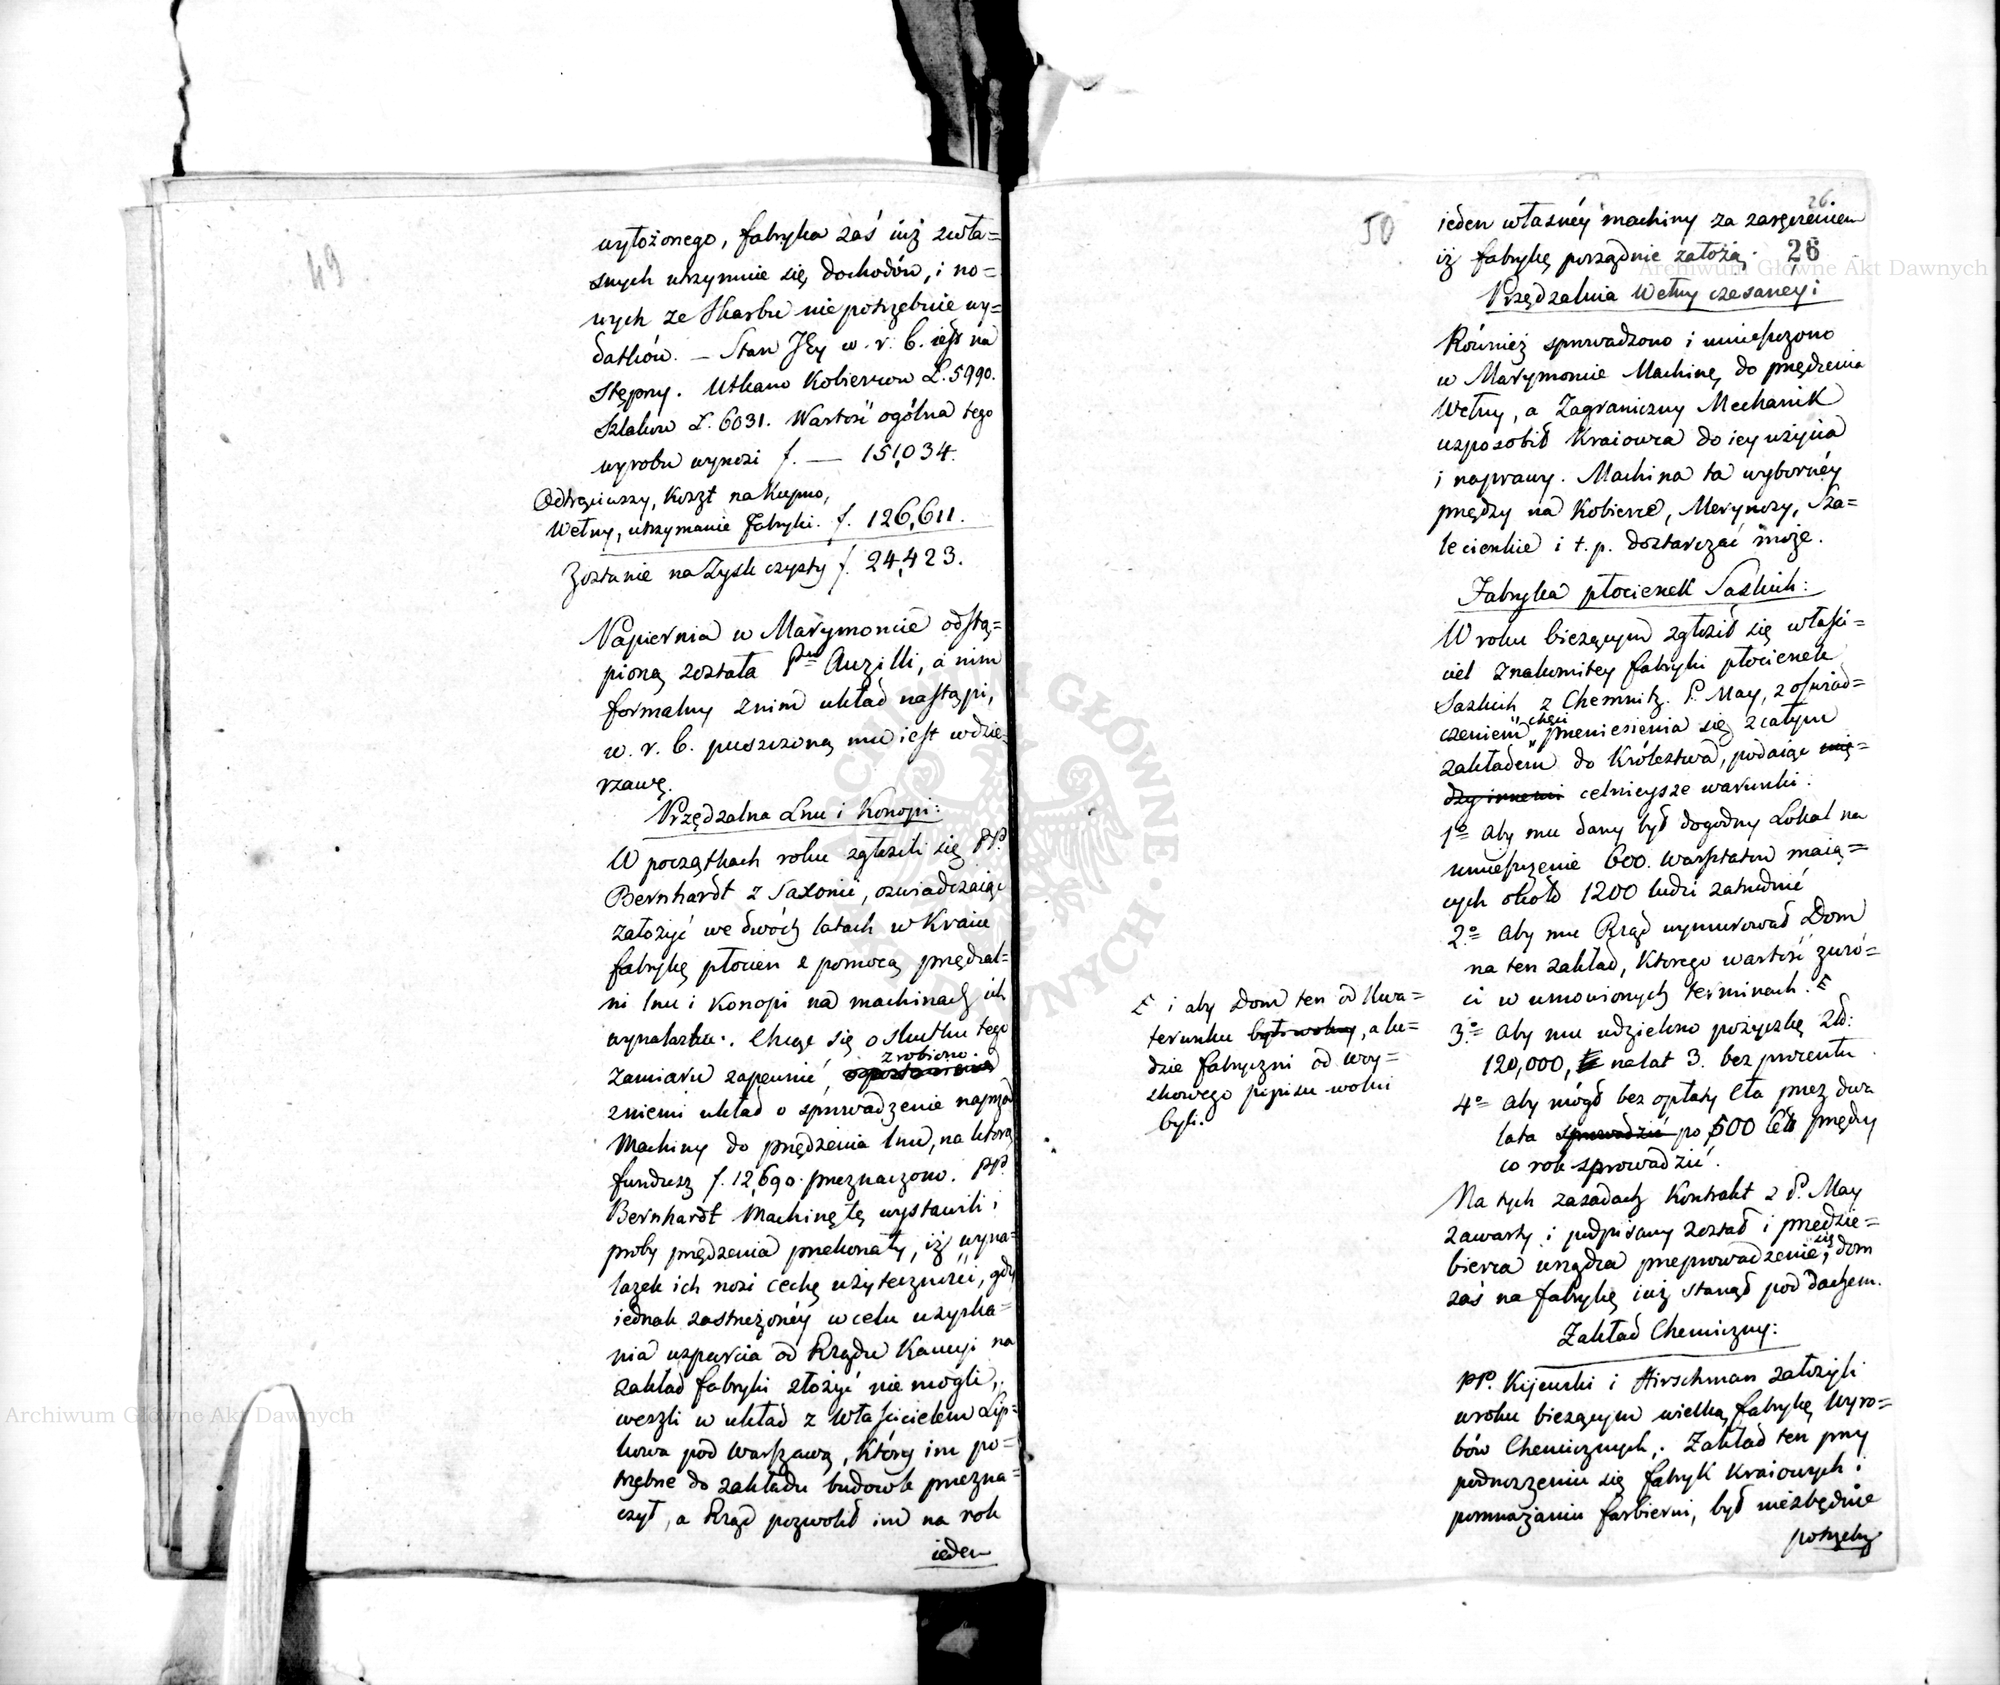 49
wyłożonego, fabryka zaś iuż zwła=
snych utrzymuie się dochodów, i no=
wych ze Skarbu niepotrzebuie wy=
datków. — Stan Jey w. r. b. iest na
stępny. Utkano Kobierców Ł. 5990.
Szlaków Ł. 6031. Wartość ogólna tego
wyrobu wynosi f. — 151,034.
Odtrąciwszy, koszt na Kupno,
Wełny, utrzymanie Fabryki. f. 126,611.
Zostanie na Zysk czysty f. 24,423.
Papiernia w Marymoncie odstą=
pioną została Pnu Auzilli, a nim
formalny znim układ nastąpi,
w. r. b. puszczoną mu iest wdzier=
rzawę.
Przędzalna Lnu i Konopi:
W początkach roku zgłosili się PP.
Bernhardt z Saxonii, oswiadczaiąc
założyć we dwóch latach w Kraiu
fabrykę płócien z pomocą przędzal=
ni lnu i Konopi na machinach ich
wynalazku. Chcąc się o skutku tego
zrobiono
zamiaru zapewnić,
zniemi układ o sprowadzenie naprzód
Machiny do przędzenia lnu, na którą
fundusz f. 12,690. przeznaczono. PP.
Bernhardt Machinę tę wystawili i
proby przędzenia przekonały, iż wyna=
lazek ich nosi cechę użyteczności, gdy
iednak zastrzeżonéy w celu uzyska=
nia wsparcia od Rządu Kaucyi na
zakład fabryki złożyć nie mogli,
weszli w układ z Właścicielem Lip=
kowa pod Warszawą, który im po=
trzebne do zakładu budowle przezna=
czył, a Rząd pozwolił im na rok
ieden
50
26.
26
ieden własnéy machiny za zaręczeniem
iż fabrykę porządnie założą.
Przędzalnia Wełny czesaney:
Również sprowadzono i umieszczono
w Marymoncie Machinę do przędzenia
Wełny, a Zagraniczny Mechanik
usposobił Kraiowca do iey użycia
i naprawy. Machina ta wybornéy
przędzy na Kobierce, Merynosy, Sza=
le cienkie i t. p. dostarczać może.
Fabryka płócienek Saskich:
W roku bieżącym zgłosił się właści=
ciel znakomitey fabryki płócienek
Saskich z Chemnitz. P. May, z oświad=
chęci
czeniem przeniesienia się z całym
zakładem do Królestwa, podaiąc mię=
dzy innemi celnieysze warunki:
1o Aby mu dany był dogodny Lokal na
umieszczenie 600. warsztatów maią=
cych około 1200 ludzi zatrudnić
2o Aby mu Rząd wymurował Dom
na ten zakład, którego wartość zwró=
ci w umówionych terminach.
i aby Dom ten od Kwa=
terunku był wolny, a lu=
dzie fabryczni od woy=
skowego popisu wolni
byli.
3o Aby mu udzielono pożyczkę Złł:
120,000, na lat 3. bez procentu
4o Aby mógł bez opłaty Cła przez dwa
lata sprowadzić po 500 Cet: przędzy
co rok sprowadzić.
Na tych zasadach Kontrakt z P. May
zawarty i podpisany został i przedsie=
się
bierca urządza przeprowadzenie, dom
zaś na fabrykę iuż stanął pod dachem.
Zakład Chemiczny:
PP. Kijewski i Hirschman założyli
wroku bieżącym wielką fabrykę Wyro=
bów Chemicznych. Zakład ten przy
podnoszeniu się fabryk kraiowych i
pomnażaniu farbierni, był niezbędnie
potrzebny
Archiwum Główne Akt Dawnych
Archiwum Główne Akt Dawnych